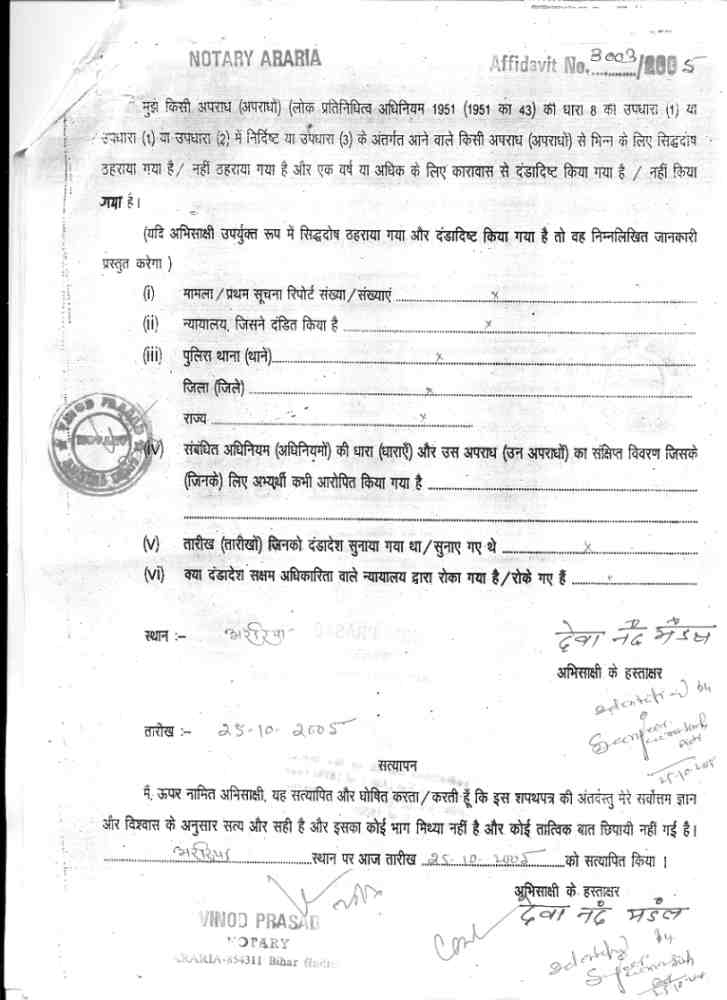 NOTARY ARARIA
Affidavit No. 3003/2005
मुझे किसी अपराध (अपराधों) (लोक प्रतिनिधित्व अधिनियम 1951 (1951 का 43) की धारा 8 की उपधारा (1) या
उपधारा (1) या उपधारा (2) में निर्दिष्ट या उपधारा (3) के अंतर्गत आने वाले किसी अपराध (अपराधों) से भिन्न के लिए सिद्धदोष
ठहराया गया है / नहीं ठहराया गया है और एक वर्ष या अधिक के लिए कारावास से दंडादिष्ट किया गया है / नहीं किया
गया है।
(यदि अभिसाक्षी उपर्युक्त रूप में सिद्धदोष ठहराया गया और दंडादिष्ट किया गया है तो वह निम्नलिखित जानकारी
प्रस्तुत करेगा )
(i) मामला / प्रथम सूचना रिपोर्ट संख्या / संख्याएं x
(ii) न्यायालय, जिसने दंडित किया है x
(iii) पुलिस थाना (थाने) x
जिला (जिले) x
राज्य x
(iv) संबंधित अधिनियम (अधिनियमों) की धारा (धाराएँ) और उस अपराध (उन अपराधों) का संक्षिप्त विवरण जिसके
(जिनके) लिए अभ्यर्थी कभी आरोपित किया गया है
(v) तारीख (तारीखों) जिनको दंडादेश सुनाया गया था / सुनाए गए थे x
(vi) क्या दंडादेश सक्षम अधिकारिता वाले न्यायालय द्वारा रोका गया है / रोके गए हैं
स्थान :- अररिया
देवा नंद मंडल
अभिसाक्षी के हस्ताक्षर
by
25-10-2005
तारीख :- 25-10-2005
सत्यापन
मैं, ऊपर नामित अभिसाक्षी, यह सत्यापित और घोषित करता / करती हूँ कि इस शपथपत्र की अंतर्वस्तु मेरे सर्वोत्तम ज्ञान
और विश्वास के अनुसार सत्य और सही है और इसका कोई भाग मिथ्या नहीं है और कोई तात्विक बात छिपायी नहीं गई है।
अररिया स्थान पर आज तारीख 25-10-2005 को सत्यापित किया ।
अभिसाक्षी के हस्ताक्षर
देवा नंद मंडल
VINOD PRASAD
NOTARY
ARARIA-854311 Bihar (India)
by